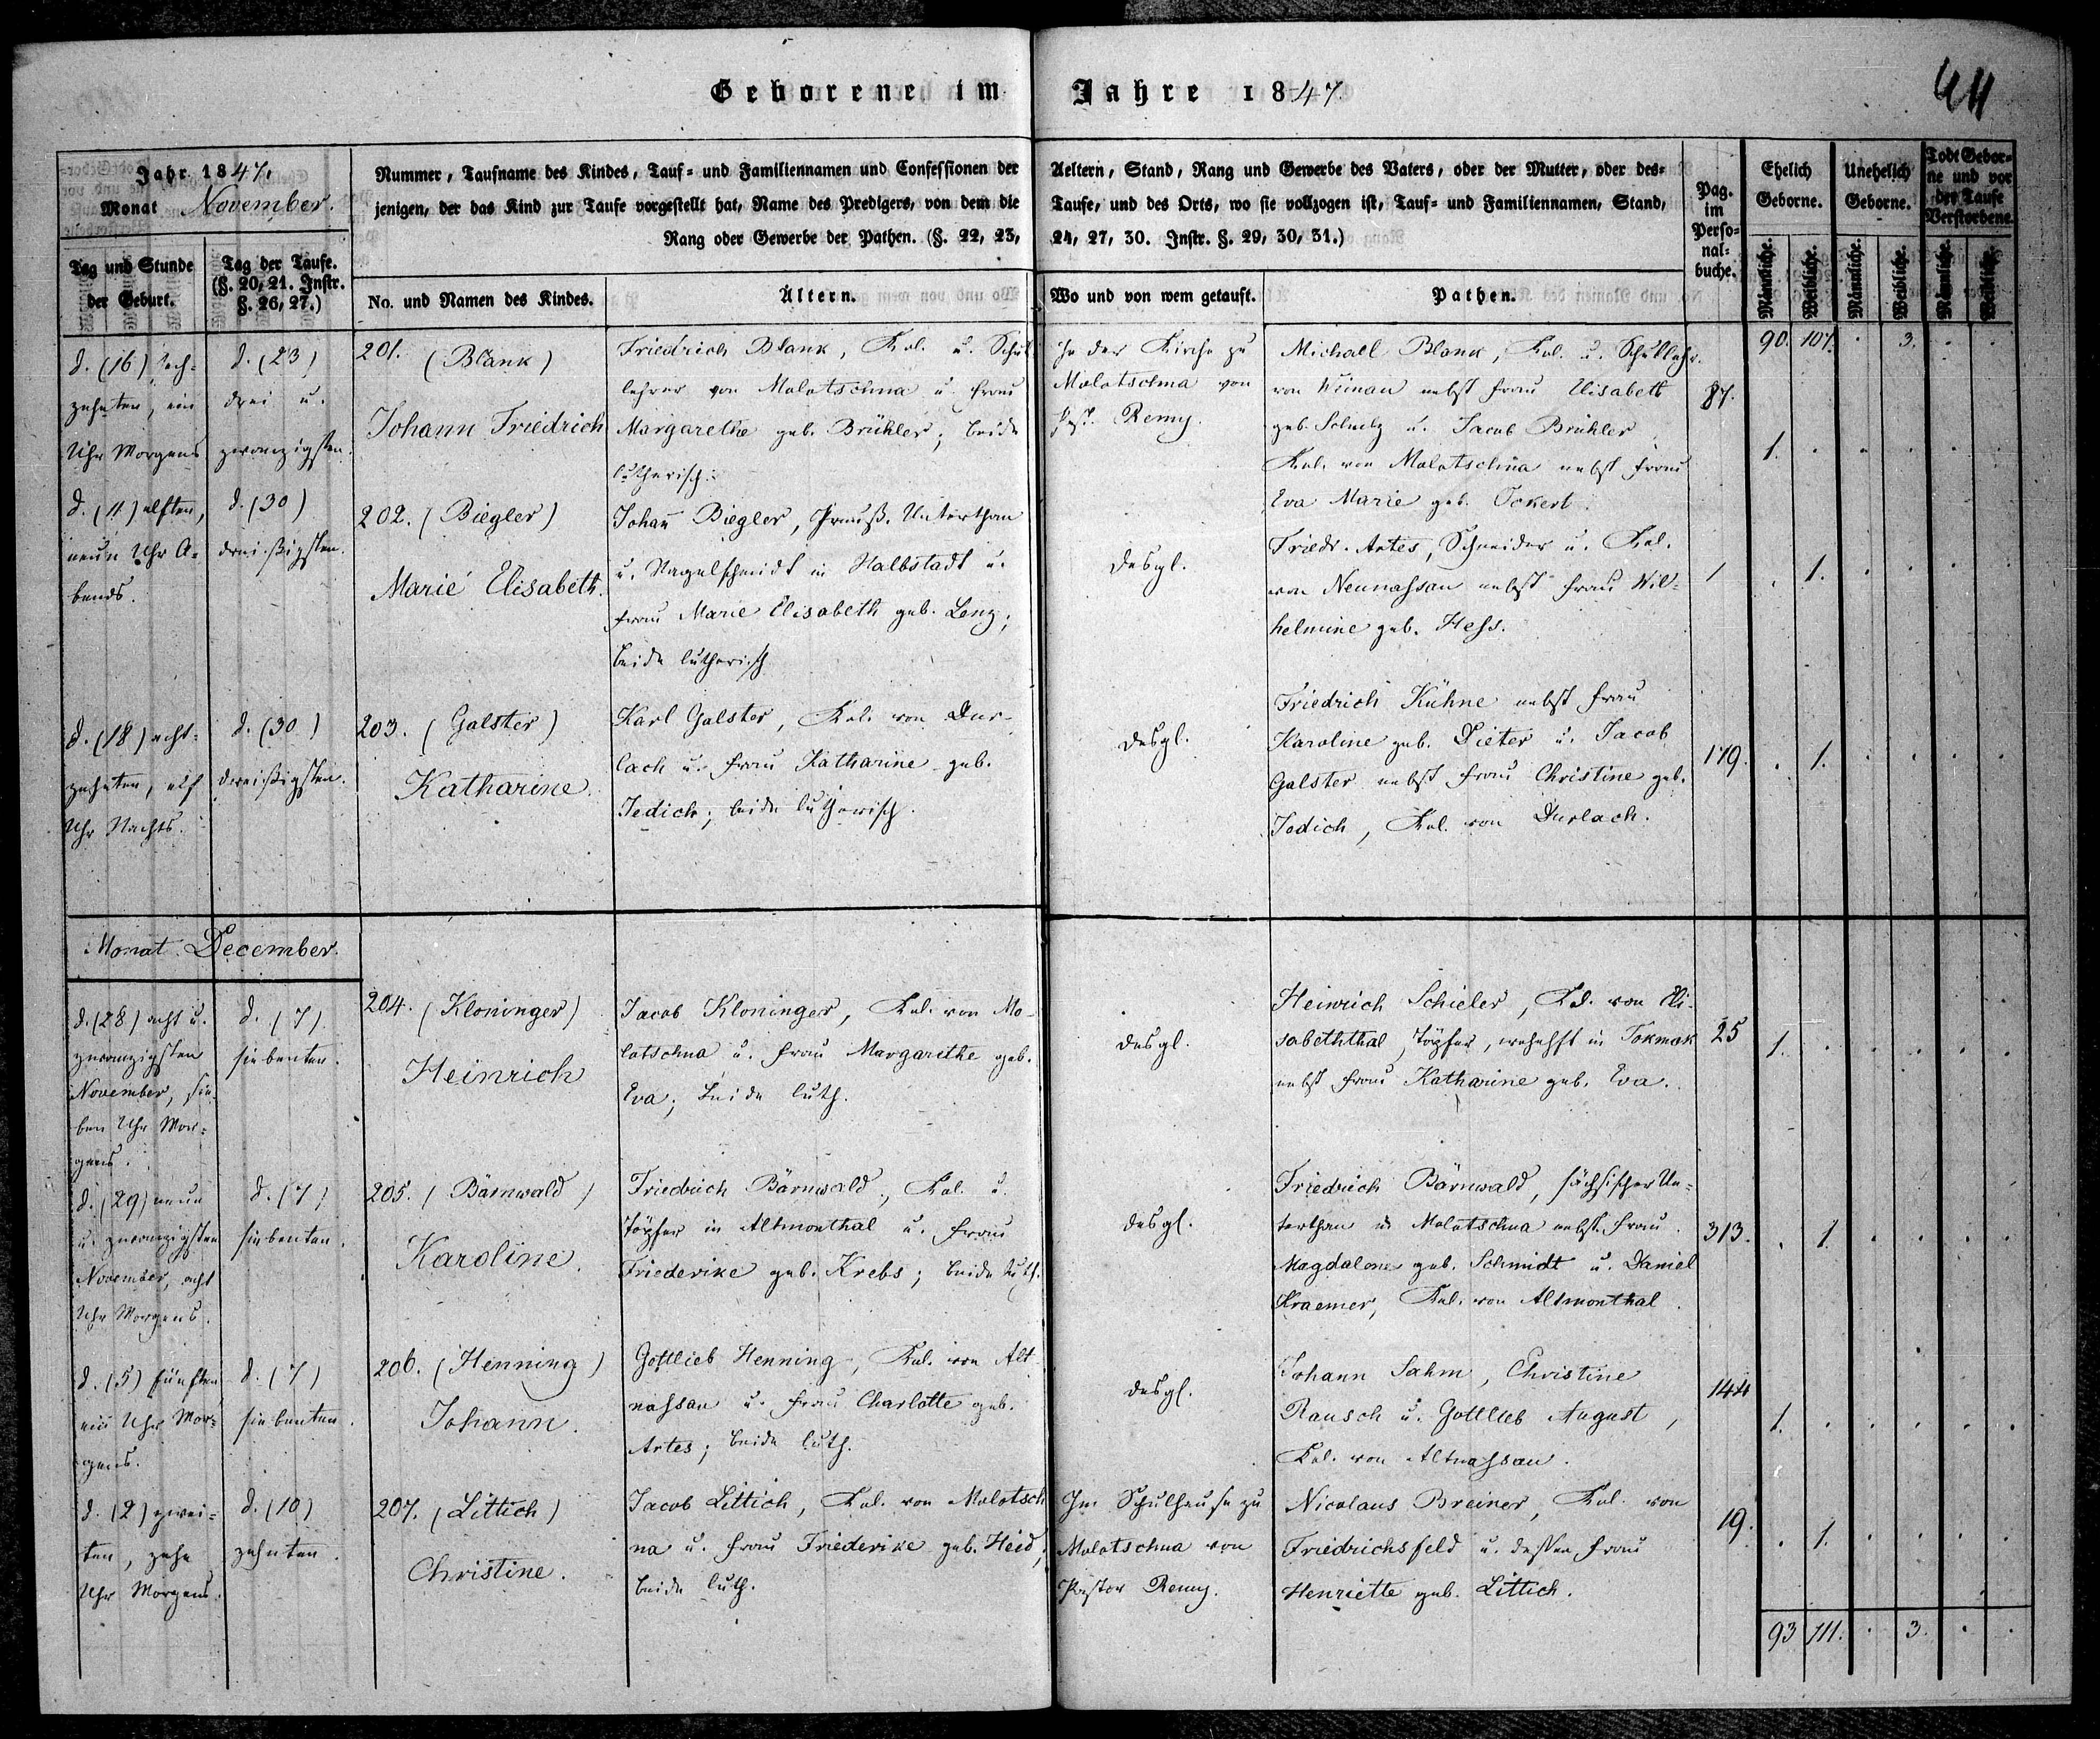 Geborene im Jahre 1847.
44
Jahr 1847.
Monat November.
Nummer, Taufname des Kindes, Tauf= und Familiennamen und Confessionen der Aeltern, Stand, Rang und Gewerbe des Vaters, oder der Mutter, oder des=
jenigen, der das Kind zur Taufe vorgestellt hat, Name des Predigers, von dem die Taufe, und des Orts, wo sie vollzogen ist, Tauf= und Familiennamen, Stand,
Rang oder Gewerbe der Pathen. (§. 22, 23, 24, 27, 30. Instr. §. 29, 30, 31.)
Pag.
im
Perso=
nal=
buche.
Ehelich
Geborne.
Unehelich
Geborne.
Todt Gebor=
ne und vor
der Taufe
Verstorbene.
Tag und Stunde
der Geburt.
Tag der Taufe.
(§. 20, 21. Instr.
§. 26, 27.)
No. und Namen des Kindes.
Ältern.
Wo und von wem getauft.
Pathen.
Männliche.
Weibliche.
Männliche.
Weibliche.
Männliche.
Weibliche.
90. 107. . 3. . .
d. (16) sech=
zehnten, ein
Uhr Morgens
d. (23)
drei u.
zwanzigsten.
201. (Blank)
Johann Friedrich
Friedrich Blank, Kol. u. Schul
lehrer von Molotschna u. Frau
Margarethe geb. Brühler; beide
lutherisch.
In der Kirche zu
Molotschna von
Past. Remy.
Michael Blank, Kol. u. Schullehr.
von Weinau nebst Frau Elisabeth
geb. Schulz u. Jacob Brühler
Kol. von Molotschna nebst Frau
Eva Marie geb. Ockert.
87.
1. . . . . .
d. (11) elften,
neun Uhr A=
bends.
d. (30)
dreißigsten.
202. (Biegler)
Marie Elisabeth.
Johann Biegler, Preuß. Unterthan
u. Nagelschmidt in Halbstadt u.
Frau Marie Elisabeth geb. Lenz;
beide lutherisch
desgl.
Friedr. Artes, Schneider u. Kol.
von Neunassau nebst Frau Wil=
helmine geb. Hess.
1
. 1. . . . .
d. (18) acht=
zehnten, elf
Uhr Nachts.
d. (30)
dreißigsten.
203. (Galster)
Katharine.
Karl Galster, Kol. von Dur=
lach u. Frau Katharine geb.
Jedich; beide lutherisch.
desgl.
Friedrich Kühne nebst Frau
Karoline geb. Dieter u. Jacob
Galster nebst Frau Christine geb.
Jedich, Kol. von Durlach.
179.
. 1. . . . .
Monat December.
d. (28) acht u.
zwanzigsten
November, sie=
ben Uhr Mor=
gens.
d. (7)
siebenten.
204. (Kloninger)
Heinrich
Jacob Kloninger, Kol. von Mo=
lotschna u. Frau Margarethe geb.
Eva; beide luth.
desgl.
Heinrich Schieler, Kol. von Eli=
sabeththal, Töpfer, wohnhft in Tokmak
nebst Frau Katharine geb. Eva.
25
1. . . . . .
d. (29) neun
u. zwanzigsten
November, acht
Uhr Morgens.
d. (7)
siebenten.
205. (Bärnwald)
Karoline.
Friedrich Bärnwald, Kol. u.
Töpfer in Altmonthal u. Frau
Friederike geb. Krebs; beide luth.
desgl.
Friedrich Bärnwald, sächsischer Un=
terthan in Molotschna nebst Frau
Magdalone geb. Schmidt u. Daniel
Kraemer, Kol. von Altmonthal.
313.
. 1. . . . .
d. (5) fünften
ein Uhr Mor=
gens.
d. (7)
siebenten.
206. (Henning)
Johann.
Gottlieb Henning, Kol. von Alt=
nassau u. Frau Charlotte geb.
Artes; beide luth.
desgl.
Johann Sahm, Christine
Rausch u. Gottlieb August,
Kol. von Altnassau.
144
1. . . . . .
d. (2) zwei=
ten, zehn
Uhr Morgens.
d. (10)
zehnten.
207. (Littich)
Christine.
Jacob Littich, Kol. von Molotsch
na u. Frau Friederike geb. Heid,
beide luth.
Im Schulhause zu
Molotschna von
Pastor Remy.
Nicolaus Breiner, Kol. von
Friedrichsfeld u. dessen Frau
Henriette geb. Littich.
19.
. 1. . . . .
93 111. . 3. . .